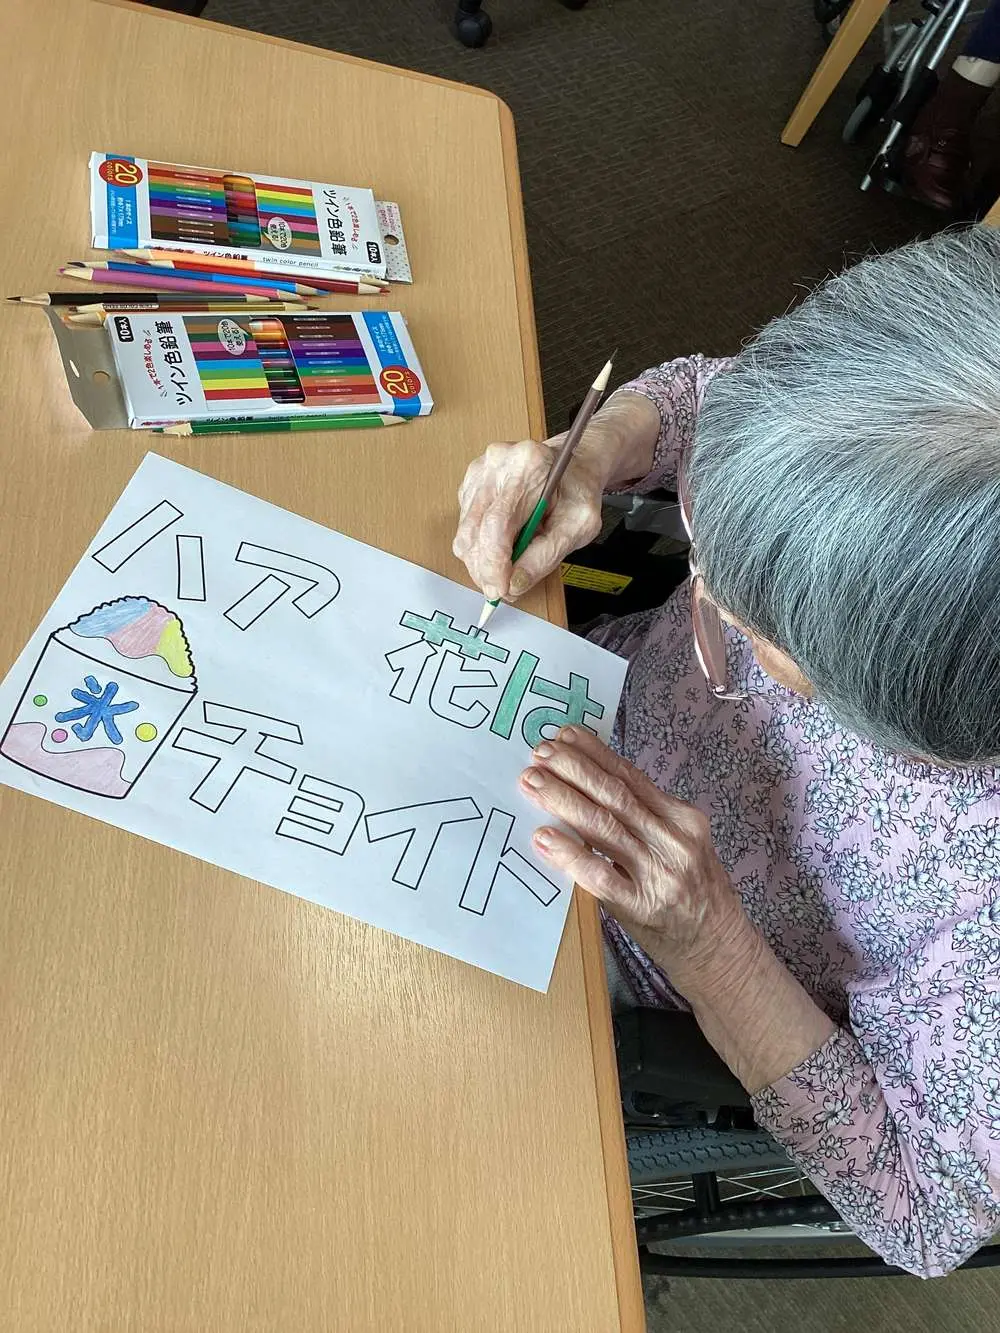 20
colors
ツイン色鉛筆
10本入
twin color pencil
10本入
10本で20色
使える!
1本で2色楽しめる
ツイン色鉛筆
20
colors
花は
ハア
チョイト
氷